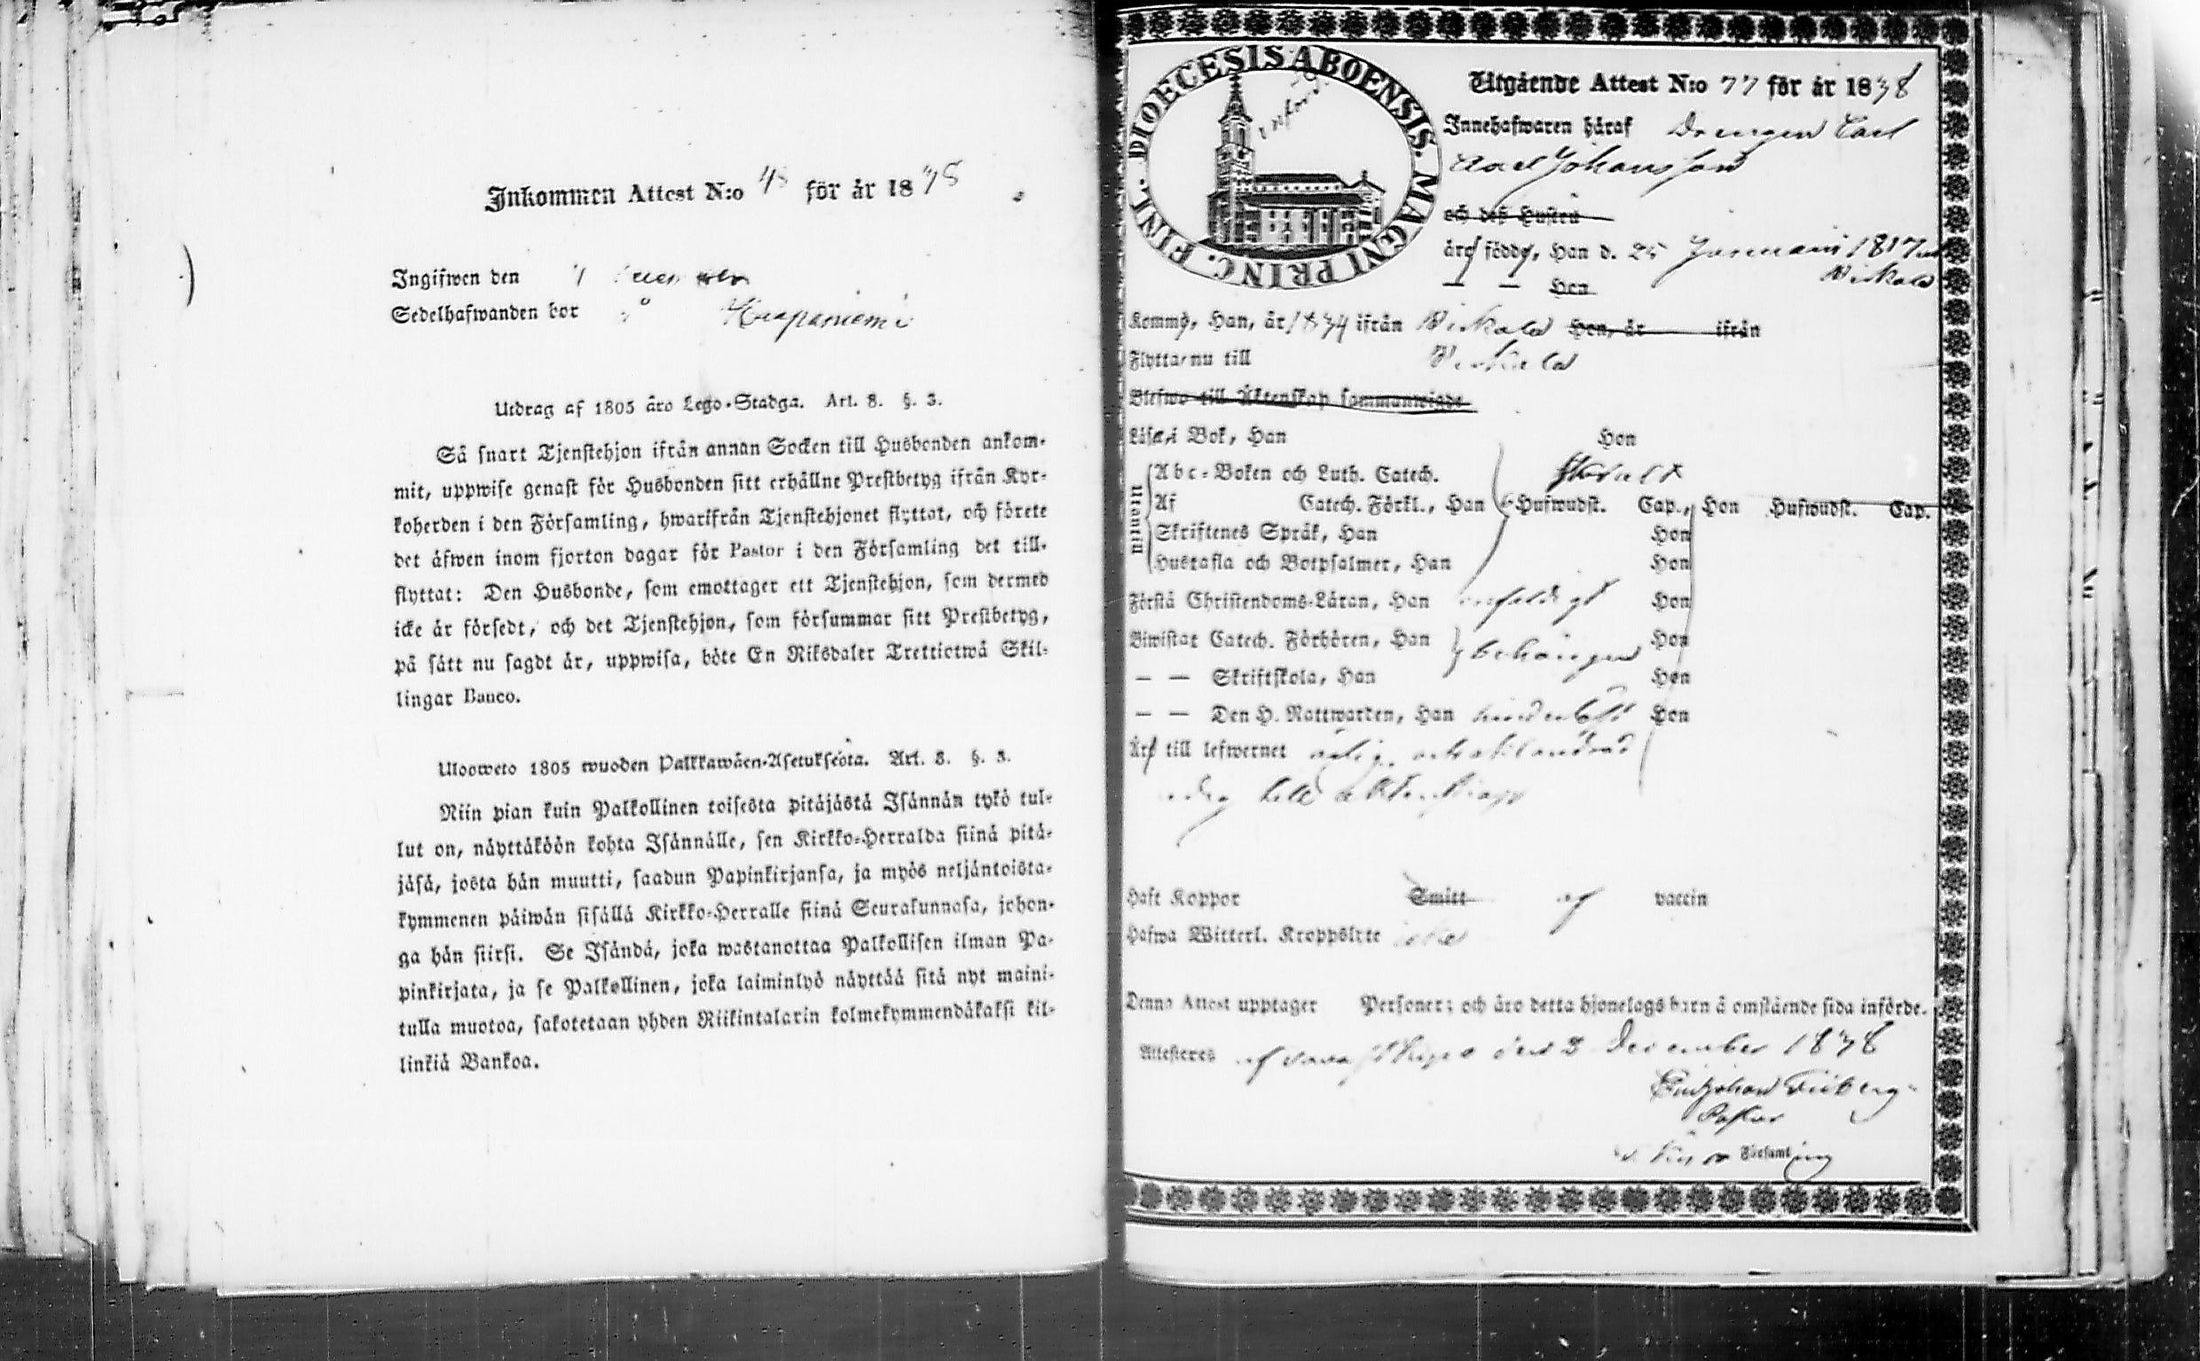 Inkommen Attest N:o 48 för år 1838
Ingifwen den
Sedelhafwanden bor å Haapaniemi
Utdrag af 1805 års Lego-Stadga. Art. 8. §. 3.
Så snart Tjenstehjon ifrån annan Socken till Husbonden ankom-
mit, uppwise genast för Husbonden sitt erhållne Prestbetyg ifrån Kyr-
koherden i den Församling, hwarifrån Tjenstehjonet flyttat, och förete
det äfwen inom fjorton dagar för Pastor i den Församling det till-
flyttat: Den Husbonde, som emottager ett Tjenstehjon, som dermed
icke är försedt, och det Tjenstehjon, som försummar sitt Prestbetyg,
på sätt nu sagdt är, uppwisa, böte En Riksdaler Trettiotwå Skil-
lingar Banco.
Ulosweto 1805 wuoden Palkkawäen-Asetuksesta. Art. 8. §. 3.
Niin pian kuin Palkollinen toisesta pitäjästä Isännän tykö tul-
lut on, näyttäköön kohta Isännälle, sen Kirkko-Herralda siinä pitä-
jäsä, josta hän muutti, saadun Papinkirjansa, ja myös neljäntoista-
kymmenen päiwän sisällä Kirkko-Herralle siinä Seurakunnasa, johon-
ga hän siirsi. Se Isändä, joka wastanottaa Palkollisen ilman Pa-
pinkirjata, ja se Palkollinen, joka laiminlyö näyttää sitä nyt maini-
tulla muotoa, sakotetaan yhden Riikintalarin kolmekymmendäkaksi kil-
linkiä Bankoa.
DIOECESIS ABOENSIS. MAGNI PRINC. FINL.
införd
Utgående Attest N:o 77 för år 1838
Innehafwaren häraf Drengen Carl
Axel Johansson
och deß Hustru
äro födde, Han d. 25 Januarii 1817 i
Wirkala
— — Hon
Kommo, Han, år 1834 ifrån Wirkala Hon, år ifrån
Flytta nu till Wirkala
Blefwo till Äktenskap sammanwigde
Läser i Bok, Han Hon
Utantill
Abc-Boken och Luth. Catech.
Af Catech. Förkl., Han Hufwudst. Cap., Hon Hufwudst. Cap.
Skriftenes Språk, Han Hon
Hustafla och Botpsalmer, Han Hon
Förstå Christendoms-Läran, Han enfaldigt Hon
Biwistat Catech. Förhören, Han behörigen Hon
— — Skriftskola, Han Hon
— — Den H. Nattwarden, Han Hon
Äro till lefwernet ärlig
Haft Koppor Smitt af vaccin
Hafwa Witterl. Kroppslyte icke
Denna Attest upptager Personer; och äro detta hjonelags barn å omstående sida införde.
Attesteres af den 3 December 1838
Pastor
Församling